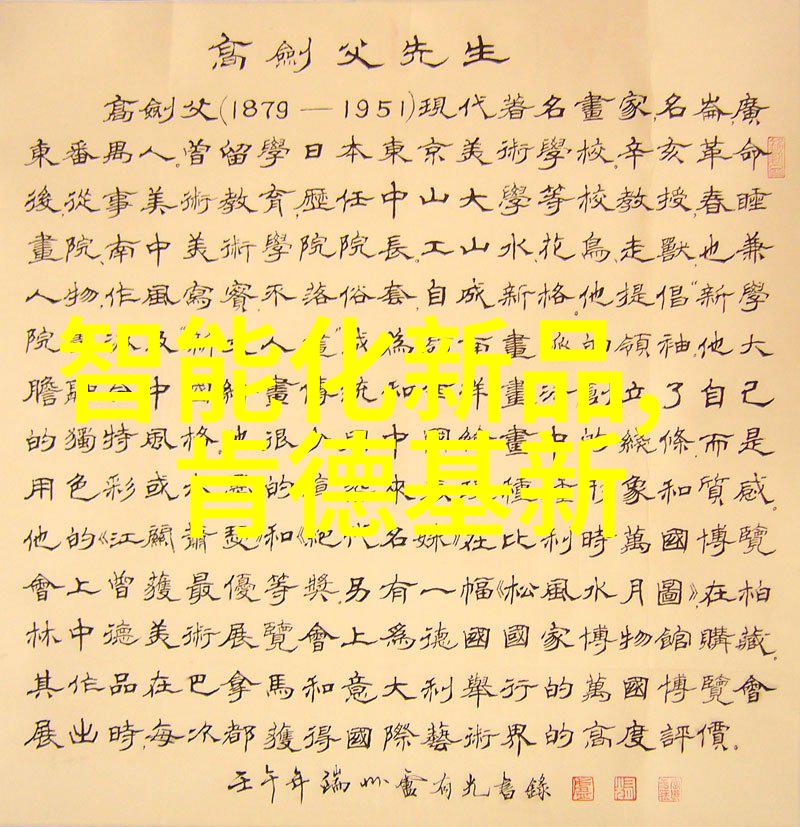 高劍父先生
高劍父(1879—1951)現代著名畫家,名崙,廣
東番禺人。曾留學日本東京美術學校,辛亥革命
後,從事美術教育,歷任中山大學等校教授,春睡
畫院、南中美術學院院長。工山水、花鳥、走獸,也兼
人物,作風寫實,不落俗套,自成新格。他提倡“新學
院 人 為 畫 的領袖。他大
膽 中國繪畫傳統和 洋畫 創立了自己
的獨特風格。他很 中國繪畫中的綫條,而是
用色彩或水 的 來 種 形象和質感。
他的《江關蕭瑟》和《絕代名姝》在比利時萬國博覽
會上曾獲最優等獎。另有一幅《松風水月圖》,在柏
林中德美術展覽會上爲德國國家博物館購藏。
其作品在巴拿馬和意大利舉行的萬國博覽會
展出時,每次都獲得國際藝術界的高度評價。
壬午年端州盧有光書錄
智能化新品,
肯德基新